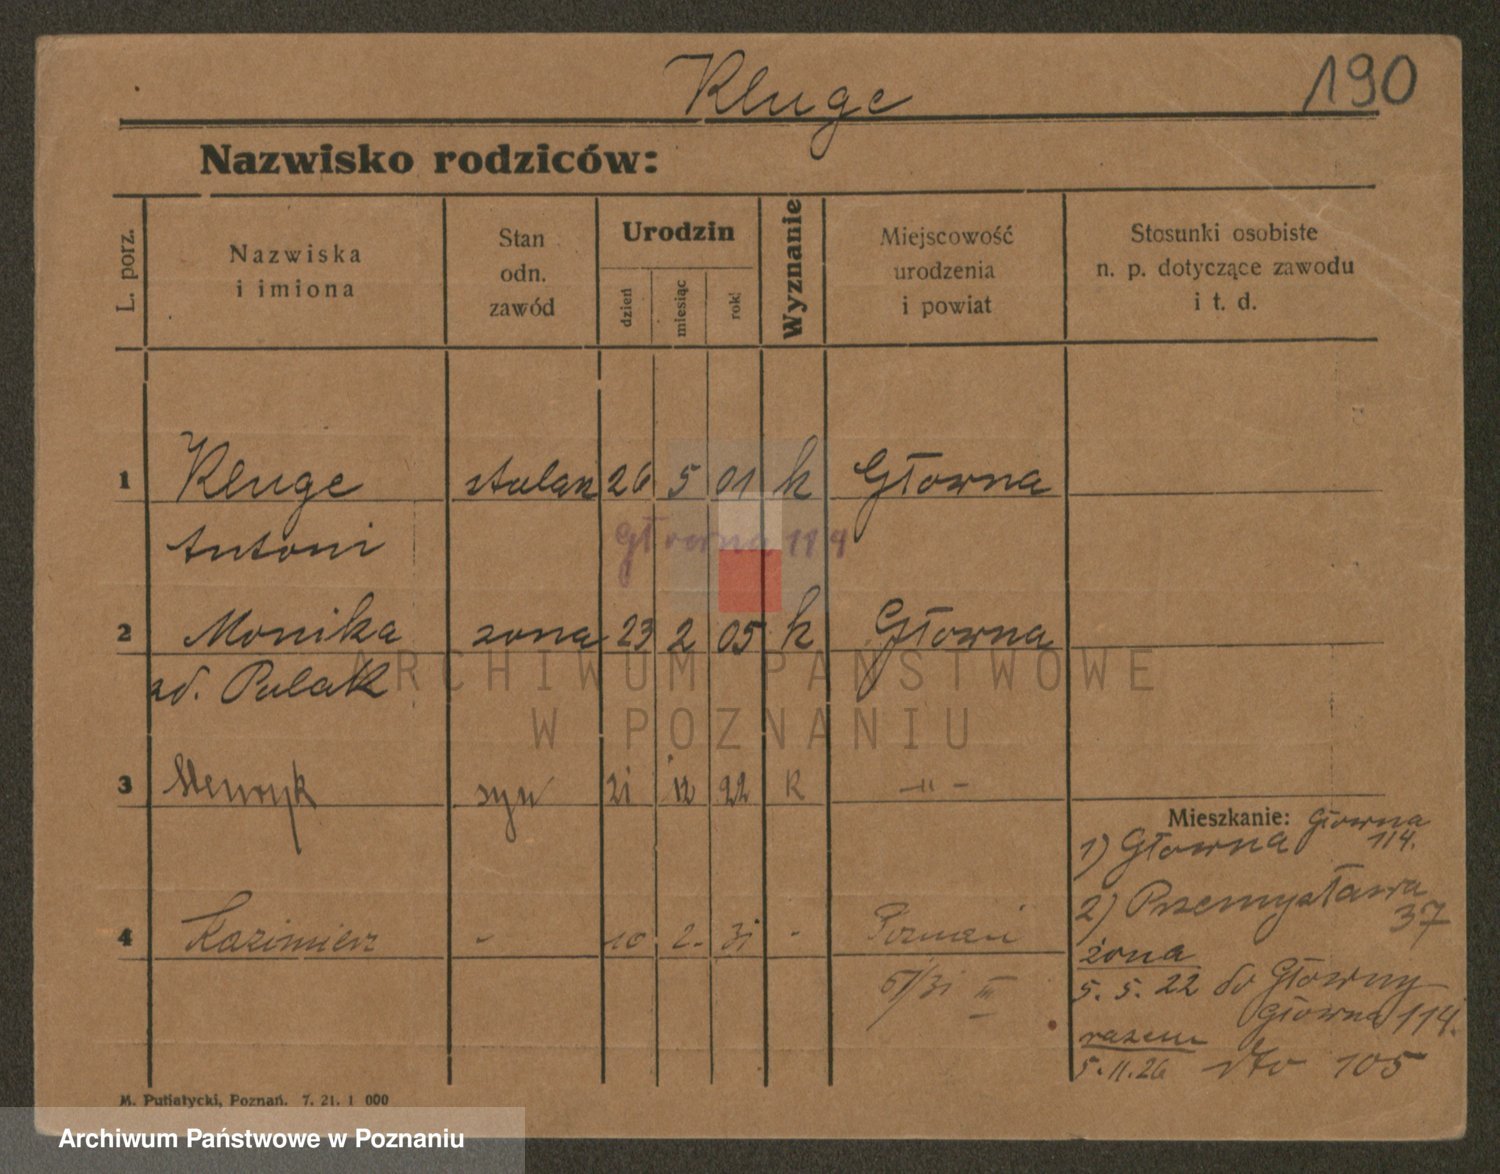 Kluge
190
Nazwisko rodziców:
L. porz.
Nazwiska
i imiona
Stan
odn.
zawód
Urodzin
dzień
miesiąc
rok
Wyznanie
Miejscowość
urodzenia
i powiat
Stosunki osobiste
n. p. dotyczące zawodu
i t. d.
1 Kluge stolarz 26 5 01 k Głowna
Antoni
Głowna 114
2 Monika zona 23 2 05 k Głowna
zd. Polak
ARCHIWUM PAŃSTWOWE
W POZNANIU
3 Henryk syn 21 12 22 k -"-
Mieszkanie: Głowna
114.
1) Głowna
2) Przemysława
37
4 Kazimierz - 10 2. 31 - Poznań
żona
5. 5. 22 do Głowny
Głowna 114.
razem
5. 11. 26 dto 105
M. Putiatycki, Poznań. 7. 21. 1 000
Archiwum Państwowe w Poznaniu